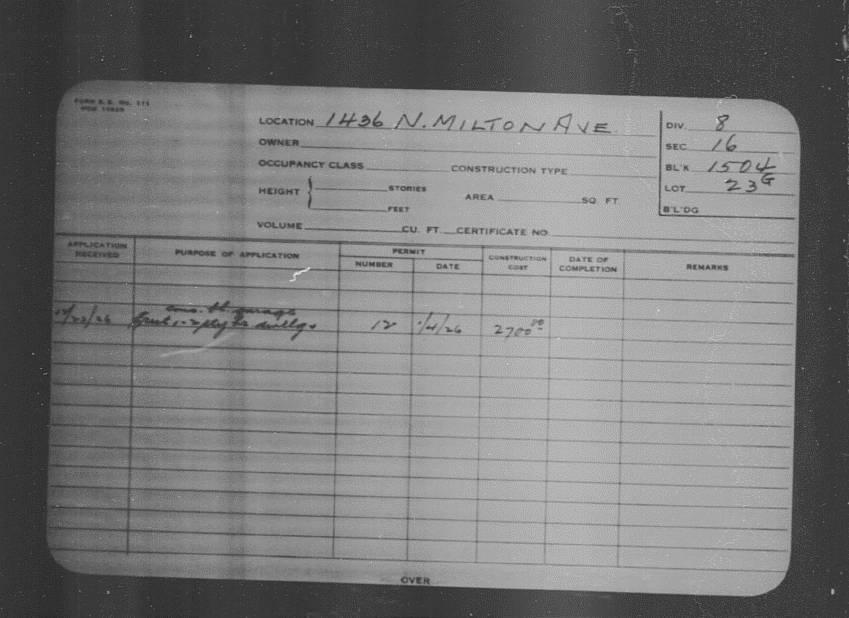 FORM B.E. No. 111
LOCATION 1436 N. MILTON AVE
OWNER
OCCUPANCY CLASS CONSTRUCTION TYPE
HEIGHT { STORIES
FEET
AREA SQ FT.
VOLUME CU. FT. CERTIFICATE NO.
DIV. 8
SEC. 16
BL'K 1504
LOT 23 G
B'L'DG
APPLICATION RECEIVED
PURPOSE OF APPLICATION
PERMIT
NUMBER
DATE
CONSTRUCTION COST
DATE OF COMPLETION
REMARKS
cons. garage
/22/26 2 dwellg + 12 1/4/26 2700 00
OVER